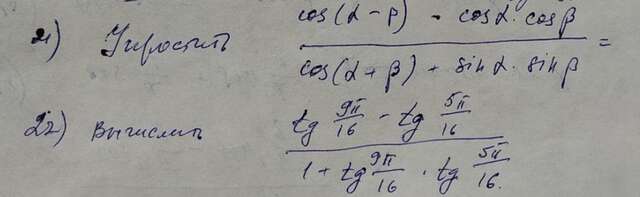 21) Упростить (cos(α - β) - cosα · cosβ) / (cos(α + β) + sinα · sinβ) =
22) Вычислить (tg 9π/16 - tg 5π/16) / (1 + tg 9π/16 · tg 5π/16)